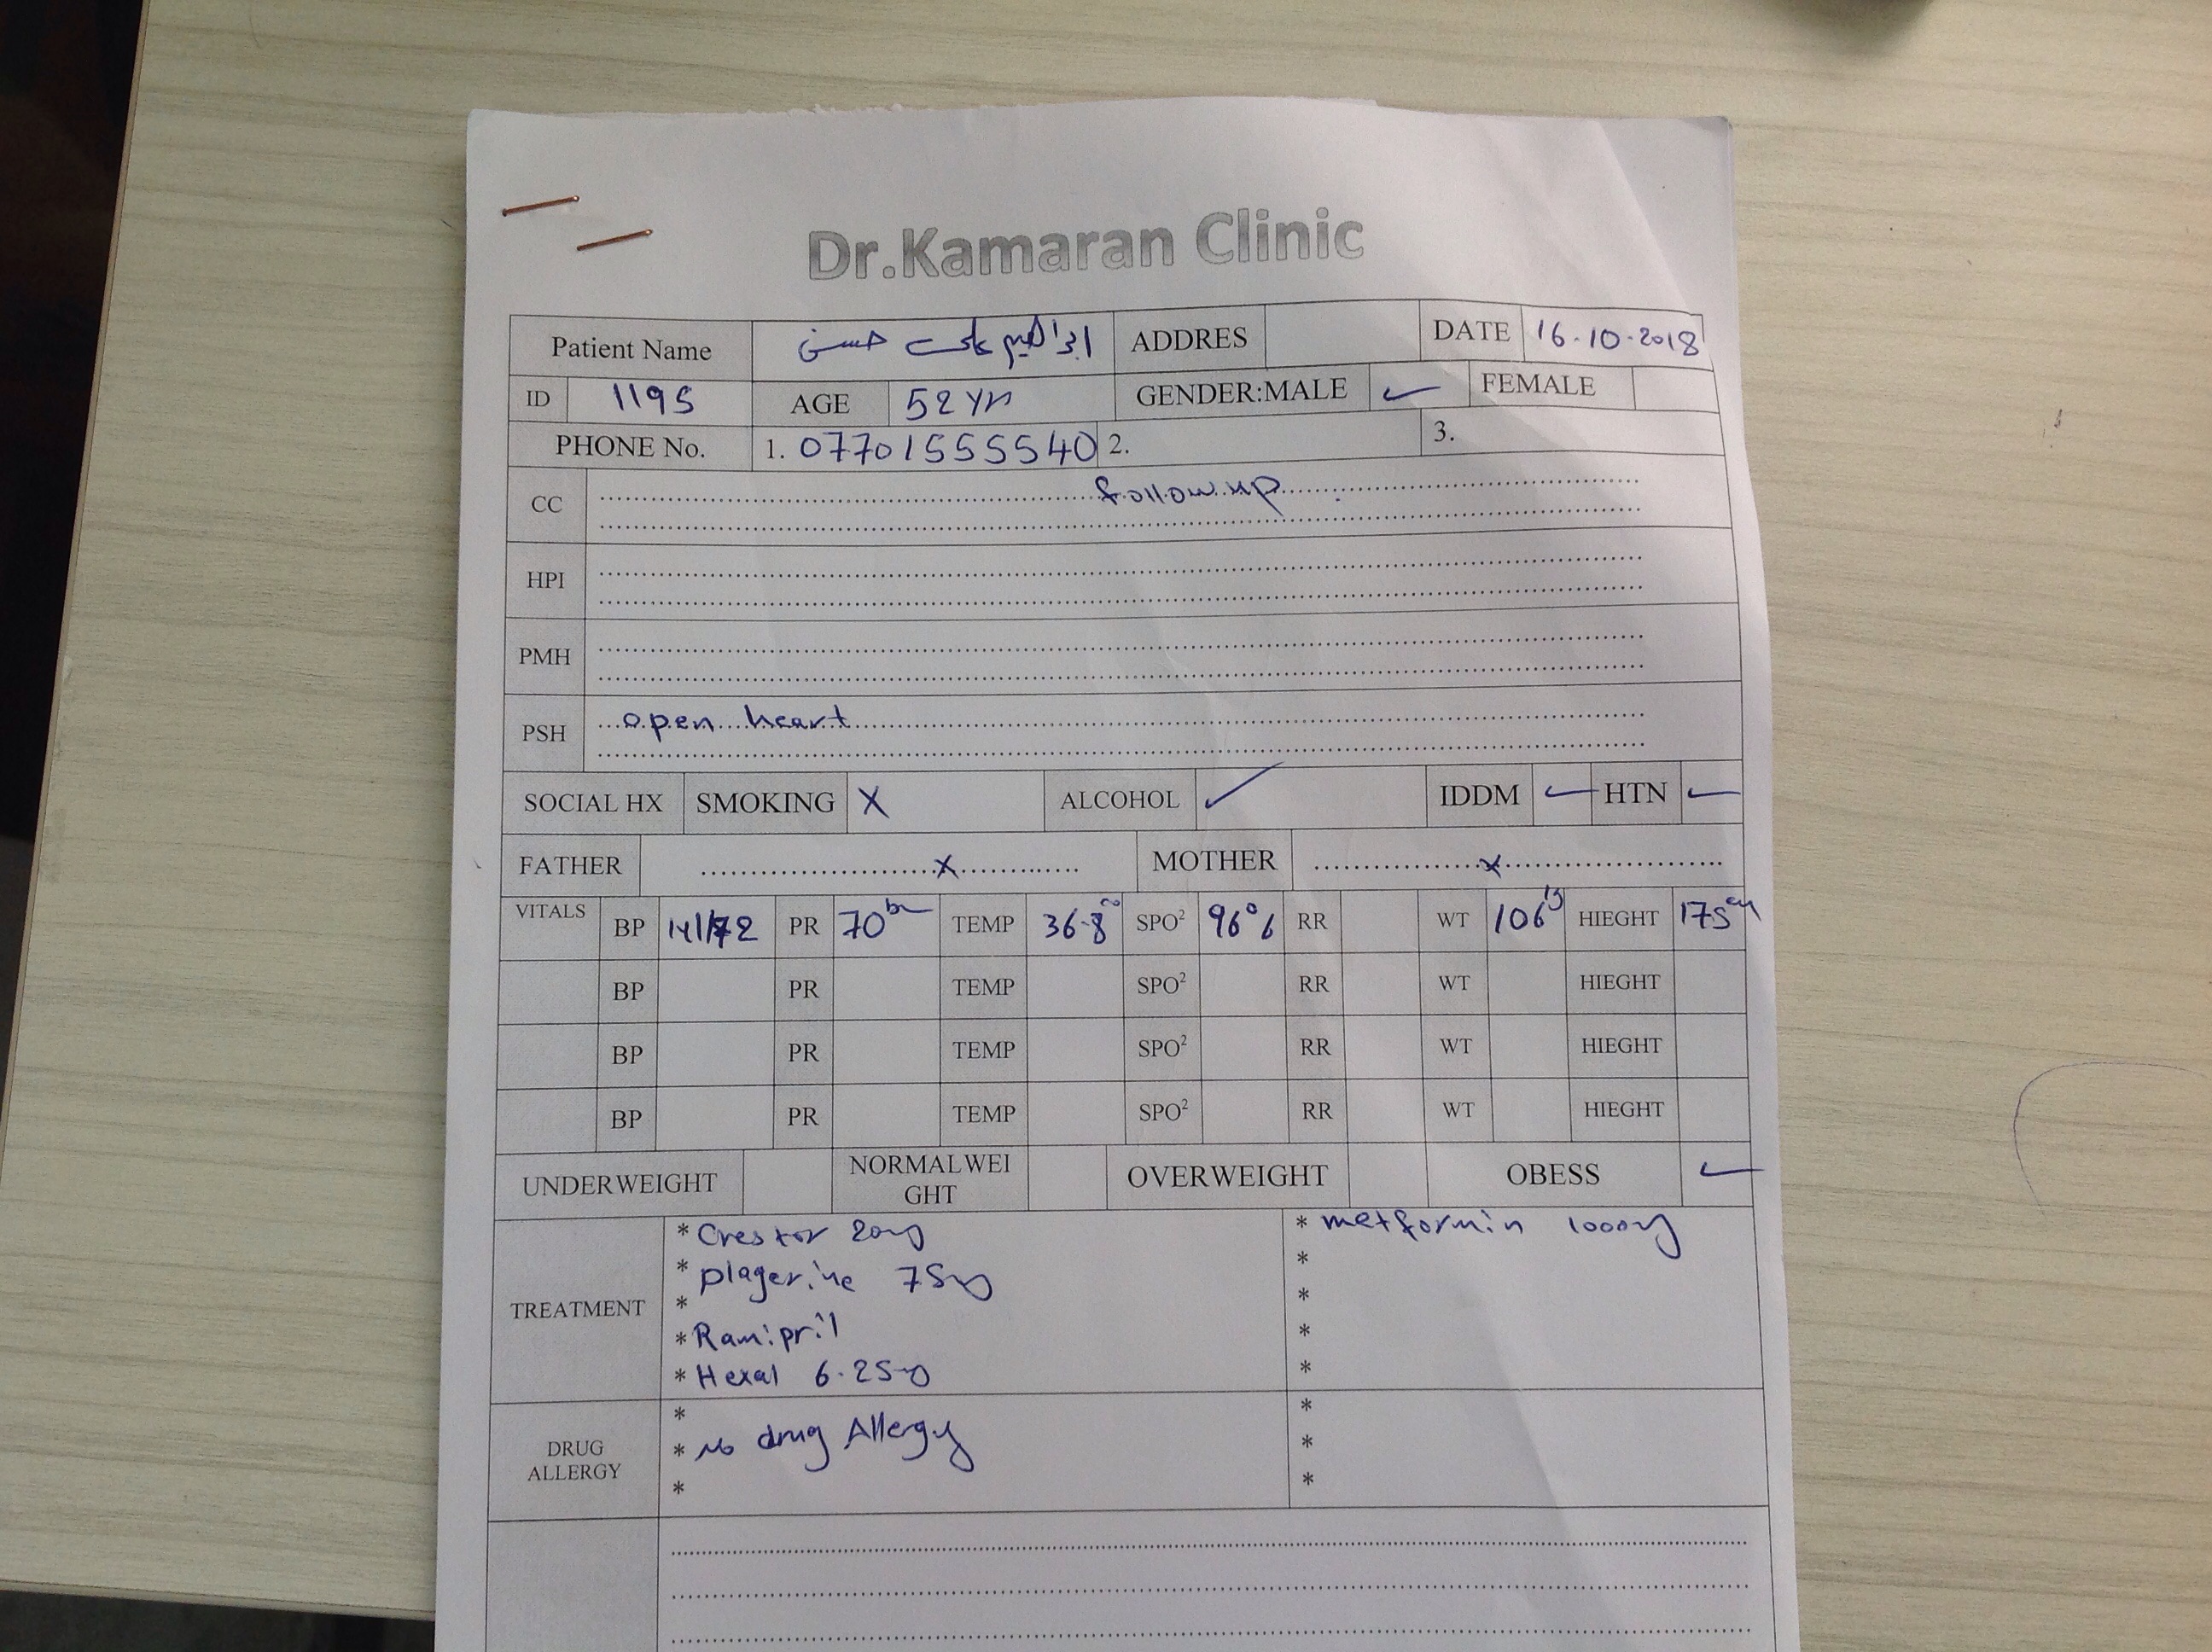 Dr.Kamaran Clinic
Patient Name ابراهيم علي حسن ADDRES DATE 16.10.2018
ID 1195 AGE 52 yr GENDER:MALE ✓ FEMALE
PHONE No. 1. 07701555540 2. 3.
CC follow up
HPI
PMH
PSH open heart
SOCIAL HX SMOKING X ALCOHOL ✓ IDDM ✓ HTN ✓
FATHER x MOTHER x
VITALS BP 141/72 PR 70 TEMP 36.8 SPO² 96% RR WT 106 HIEGHT 175 cm
BP PR TEMP SPO² RR WT HIEGHT
BP PR TEMP SPO² RR WT HIEGHT
BP PR TEMP SPO² RR WT HIEGHT
UNDERWEIGHT NORMALWEI
GHT OVERWEIGHT OBESS ✓
TREATMENT
* Crestor 20mg
* plagerine 75mg
*
* Ramipril
* Hexal 6.25mg
* metformin 1000mg
*
*
*
*
DRUG
ALLERGY
*
* no drug Allergy
*
*
*
*